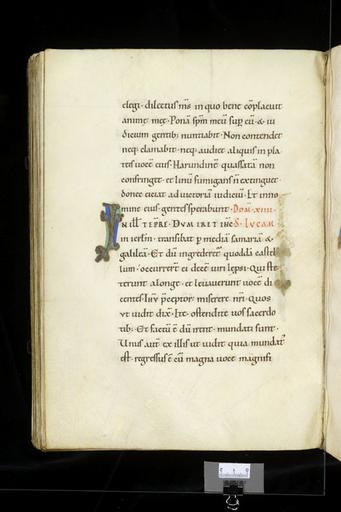 elegi · dilectus m̄s in quo bene cōplacuit
anime męę · Ponā sp̄m meū sup̱ eū · & iu
dicium gentib; nuntiabit · Non contendet
neq; clamabit · neq; audiet aliquis in pla
teis uocē eius · Harundinē quassatā non
confringet · et linū fumigans n̄ extinguet
donec eiciat ad uictoriā iudiciū · Et in no
mine eius gentes sperabunt · Dom̄ · xiiii ·
IN ill̄ tēp̄re · Dum iret ih̄c S · Lucam
in ierl̄m · transibat p̱ mediā samariā · &
galileā · Et dū ingrederet̄ quoddā castel
lum · occurrer̄t ei decē uiri lepsi · Qui ste
terunt a longe · et leuauerunt uocē di
centes · Ih̄u p̄ceptor · miserere nr̄i · Quos
ut uidit dix̄ · Ite · ostendite uos sacerdo
tib; · Et factū ē dū irent · mundati sunt ·
Unus aut̄ ex illis ut uidit quia mundat᷒
est · regressus ē cū magna uoce magnifi